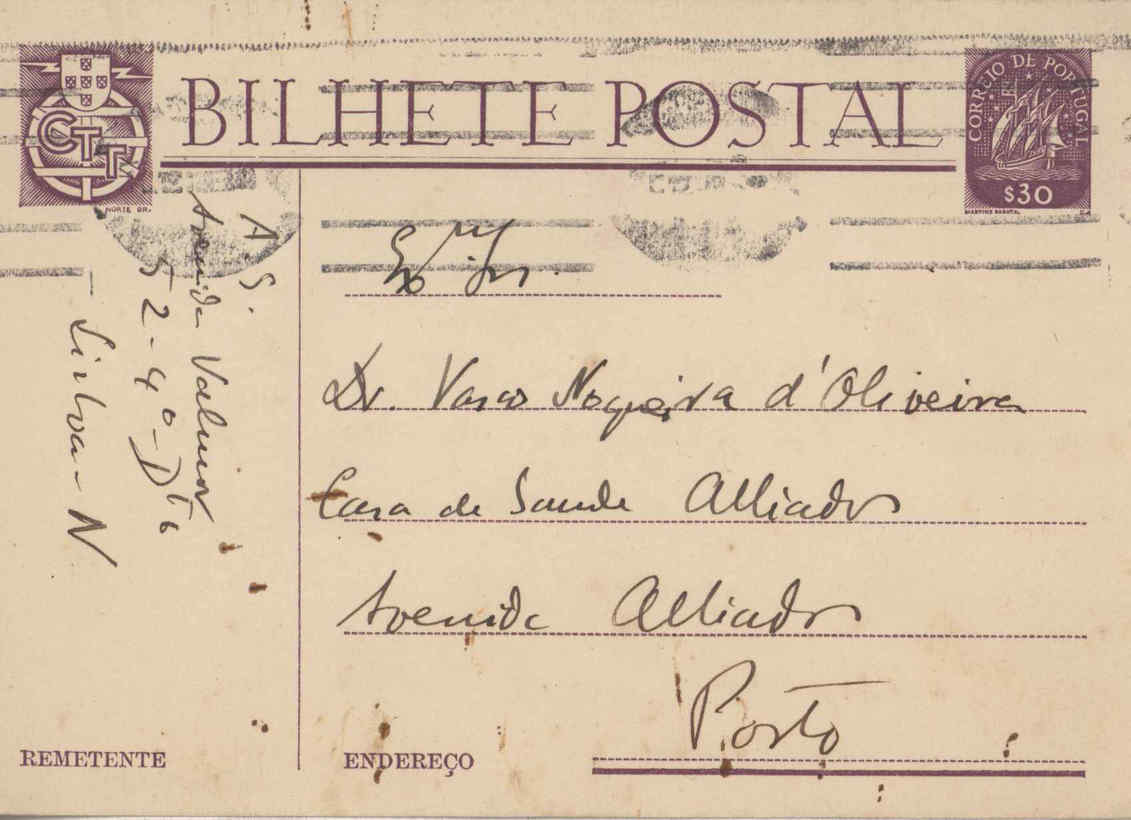 CTT
BILHETE POSTAL
CORREIO DE PORTUGAL
$30
NORTE GR.
MARTINS BARATA
A. S.
Avenida Valmor
52-4º-Dto
Lisboa-N
Exmo. Sr.
Dr. Vasco Nogueira d'Oliveira
Casa de Saude Alliados
Avenida Alliados
Porto
REMETENTE
ENDEREÇO